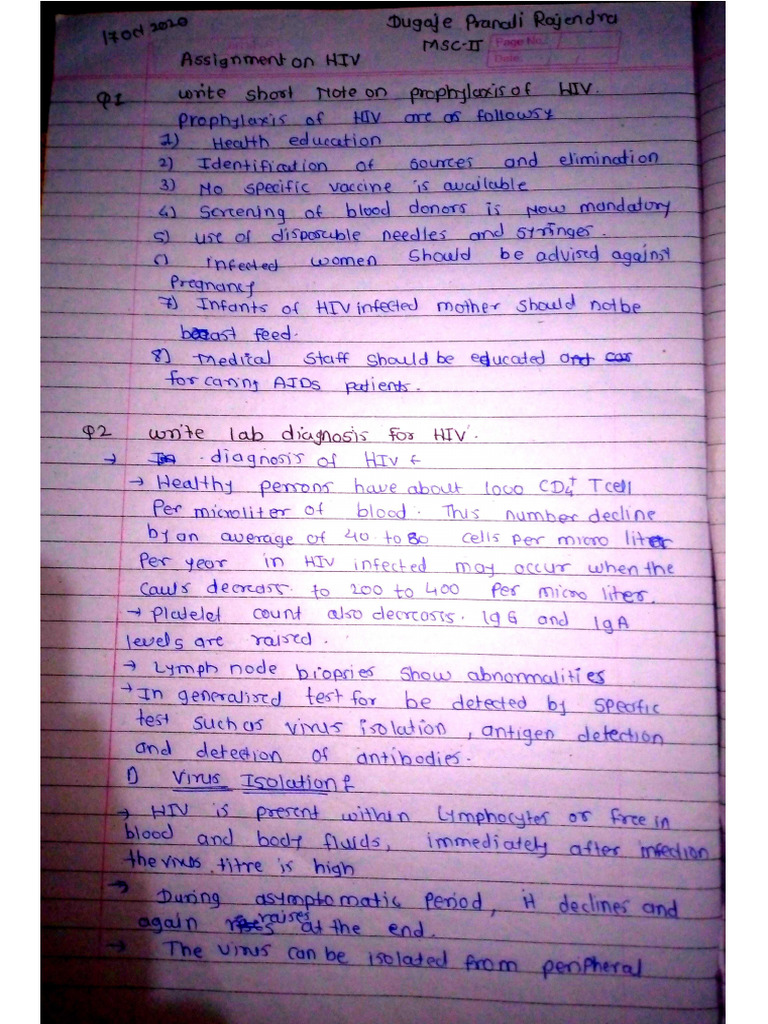 17 Oct 2020
Dugaje Pranali Rajendra
MSC-II
Page No.
Date
Assignment on HIV
Q1 write short Note on prophylaxis of HIV.
Prophylaxis of HIV are as follows
1) Health education
2) Identification of sources and elimination
3) No specific vaccine is available
4) Screening of blood donors is now mandatory
5) use of disposable needles and syringes.
6) infected women should be advised against
Pregnancy
7) Infants of HIV infected mother should notbe
breast feed.
8) Medical staff should be educated
for caring AIDs patients.
Q2 write lab diagnosis for HIV.
→ diagnosis of HIV
→ Healthy persons have about 1000 CD4+ T cell
Per microliter of blood. This number decline
by an average of 40 to 80 cells per micro liter
Per year in HIV infected may occur when the
decreas to 200 to 400 Per micro liter.
→ Platelet count also decreasis. IgG and IgA
levels are raised.
→ Lymph node biopsies show abnormalities
→ In generalised test for be detected by specific
test such as virus isolation, antigen detection
and detection of antibodies.
1) Virus Isolation
→ HIV is present within lymphocytes or free in
blood and body fluids, immediately after infection
the virus titre is high
→ During asymptomatic period, it declines and
again raises at the end.
→ The virus can be isolated from peripheral